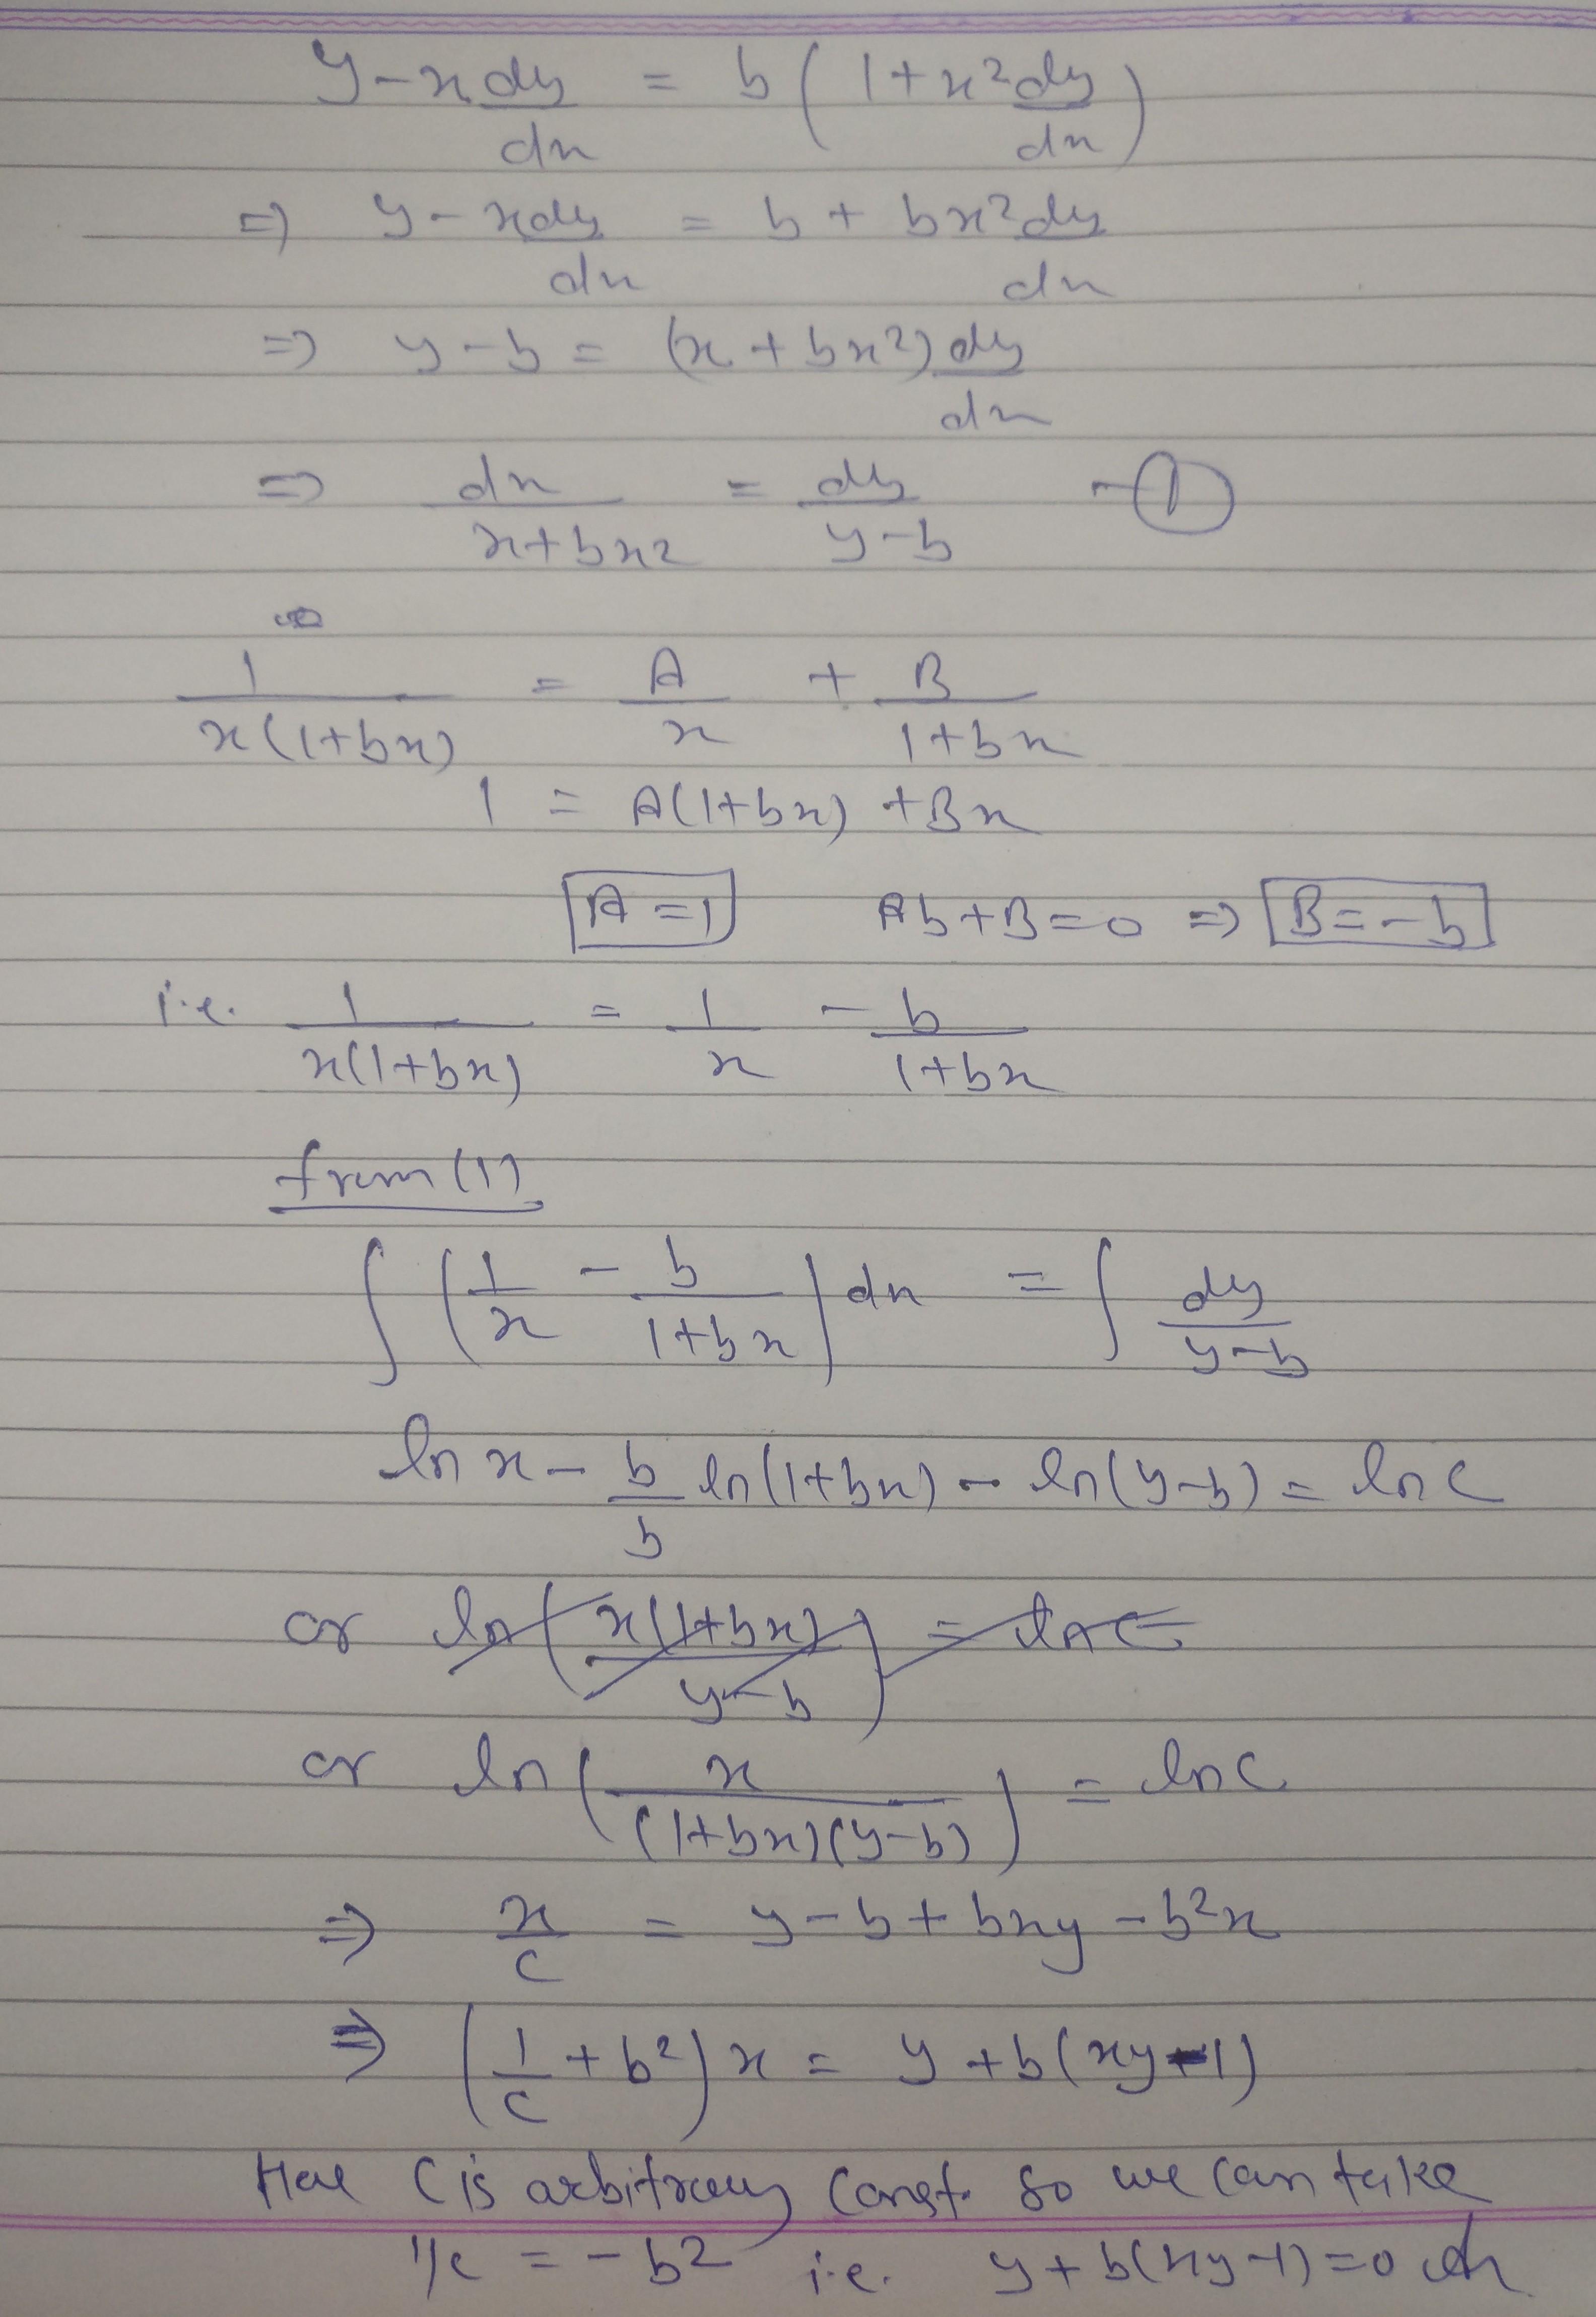 y - x dy/dx = b(1 + x² dy/dx)
⇒ y - x dy/dx = b + bx² dy/dx
⇒ y - b = (x + bx²) dy/dx
⇒ dx/(x + bx²) = dy/(y - b) - ①
1/(x(1+bx)) = A/x + B/(1+bx)
1 = A(1+bx) + Bx
A = 1 Ab + B = 0 ⇒ B = -b
i.e. 1/(x(1+bx)) = 1/x - b/(1+bx)
from (1)
∫(1/x - b/(1+bx))dx = ∫ dy/(y-b)
ln x - b/b ln(1+bx) - ln(y-b) = ln c
or ln(x(1+bx)/(y-b)) = ln c
or ln(x/((1+bx)(y-b))) = ln c
⇒ x/c = y - b + bxy - b²x
⇒ (1/c + b²)x = y + b(xy-1)
Here C is arbitrary const. so we can take
1/c = -b² i.e. y + b(xy-1) = 0